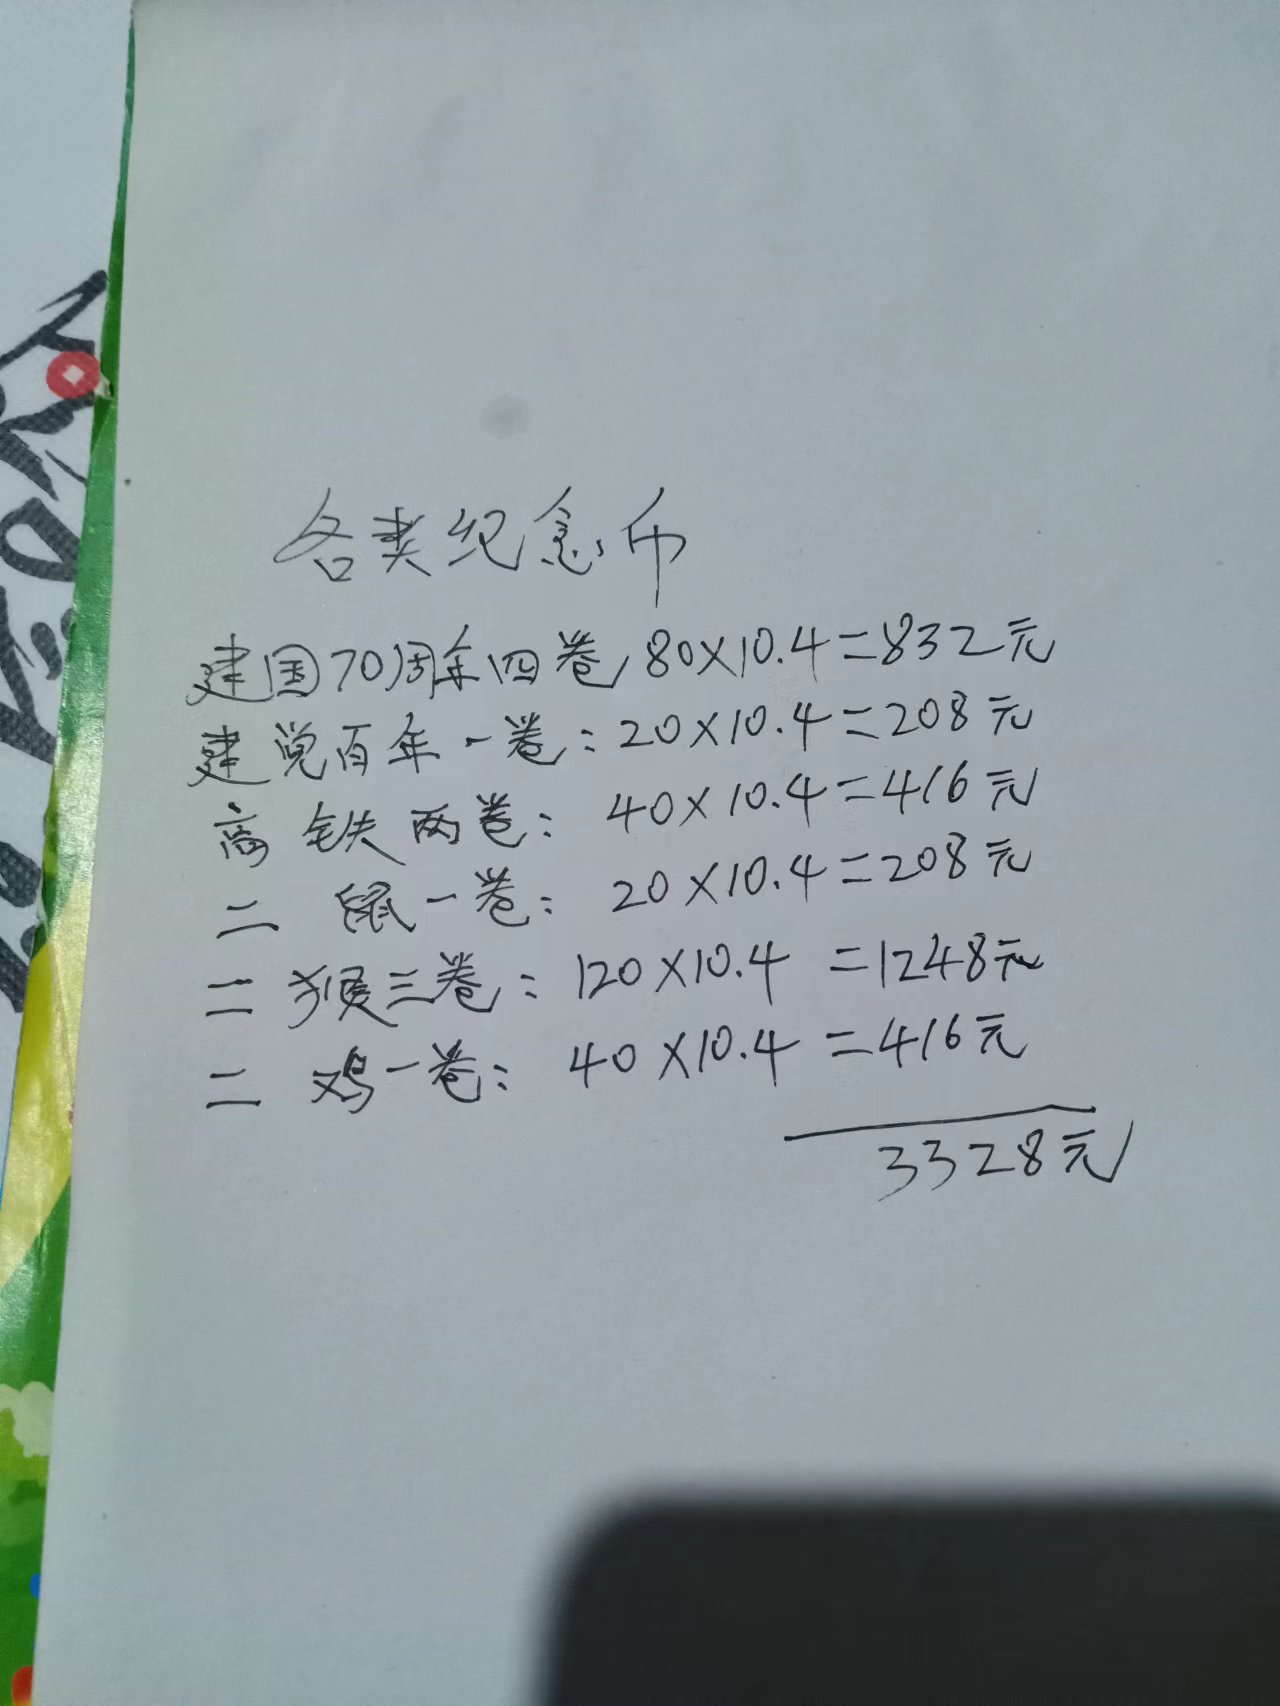 各类纪念币
建国70周年四卷80×10.4=832元
建党百年一卷：20×10.4=208元
高铁两卷：40×10.4=416元
二鼠一卷：20×10.4=208元
二猴三卷：120×10.4=1248元
二鸡一卷：40×10.4=416元
3328元